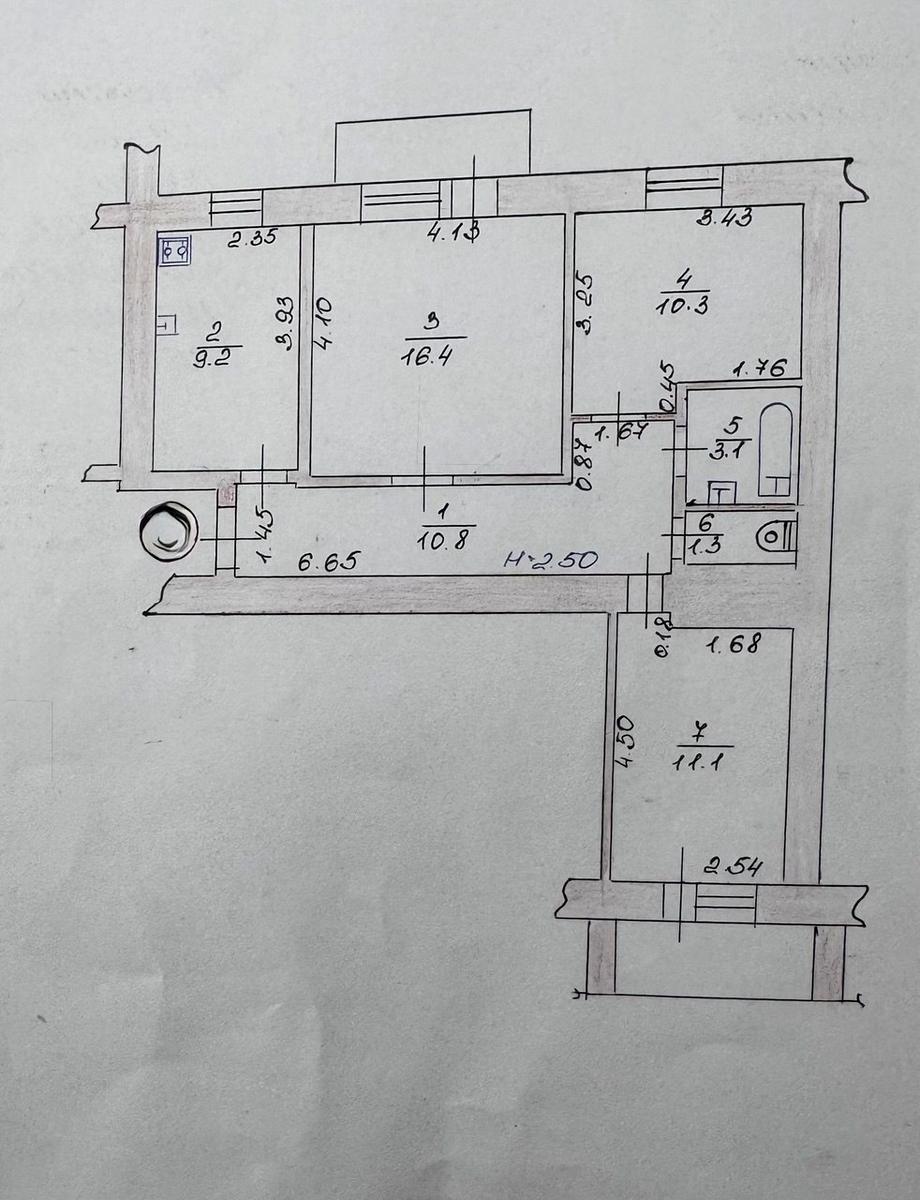 2.35
4.13
3.43
2
9.2
3.93
4.10
3
16.4
3.25
4
10.3
0.45
1.76
1.67
0.87
5
3.1
1
10.8
1.45
6.65
H=2.50
6
1.3
0.18
1.68
4.50
7
11.1
2.54